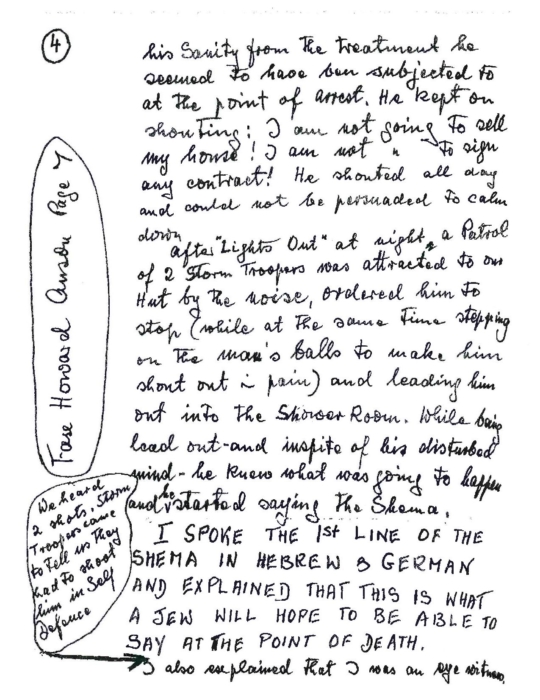 4
his Sanity from the treatment he
seemed to have ben subjected to
at the point of arrest. He kept on
shouting: I am not going to sell
my house! I am not " to sign
any contract! He shouted all day
and could not be persuaded to calm
down
After "Lights Out" at night, a Patrol
of 2 Storm Troopers was attracted to our
Hut by the noise, ordered him to
stop (while at the same time stepping
on the man's balls to make him
shout out i pain) and leading him
out into the Shower Room. While being
lead out - and inspite of his disturbed
mind - he knew what was going to happen
and he started saying the Shema.
I SPOKE THE 1st LINE OF THE
SHEMA IN HEBREW & GERMAN
AND EXPLAINED THAT THIS IS WHAT
A JEW WILL HOPE TO BE ABLE TO
SAY AT THE POINT OF DEATH.
I also explained that I was an eye witness.
Howard Page 7
We heard
2 shots. Storm
Troopers came
to tell us they
had to shoot
him in Self
Defence